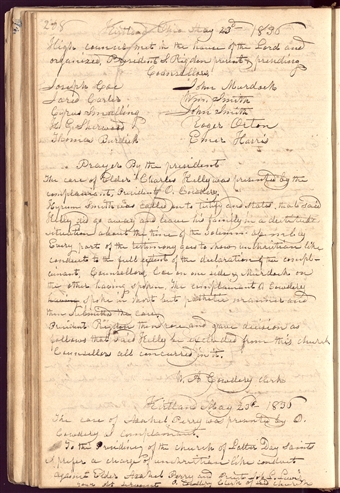 208
Kirtland Ohio May 23d 1836
High council met in the house of the Lord and
organized, President S. Rigdon present & presiding
Counsellors
Joseph Coe John Murdock
Jared Carter Wm. Smith
Cyrus Smalling John Smith
H. G. Sherwood Roger Orton
Thomas Burdick Emer Harris
Prayer By the president
The case of Elder Charles Kelly was presented by the
complainant, President O. Cowdery.
Hyrum Smith was called on to testify and stated, that said
Kelly did go away and leave his family in a destitute
situation about the time of the solemn assembly
Every part of the testimony goes to show unchristian like
conduct to the full extent of the declaration of the compl-
ainant, Counsellors, Coe on one side & Murdock on
the other having spoken. The complainant O Cowdery
having spoke in short but pathetic manner and
then submitted the case,
President Rigdon then rose and gave decision as
follows that said Kelly be excluded from this church
Councellors all concurred in it.
W. A. Cowdery clerk
Kirtland May 23d 1836
The case of Haskel Perry was presented by O.
Cowdery as complainant.
To the Presidency of the church of Latter Day Saints
I prefer a charge of unchristian like conduct
against Elder